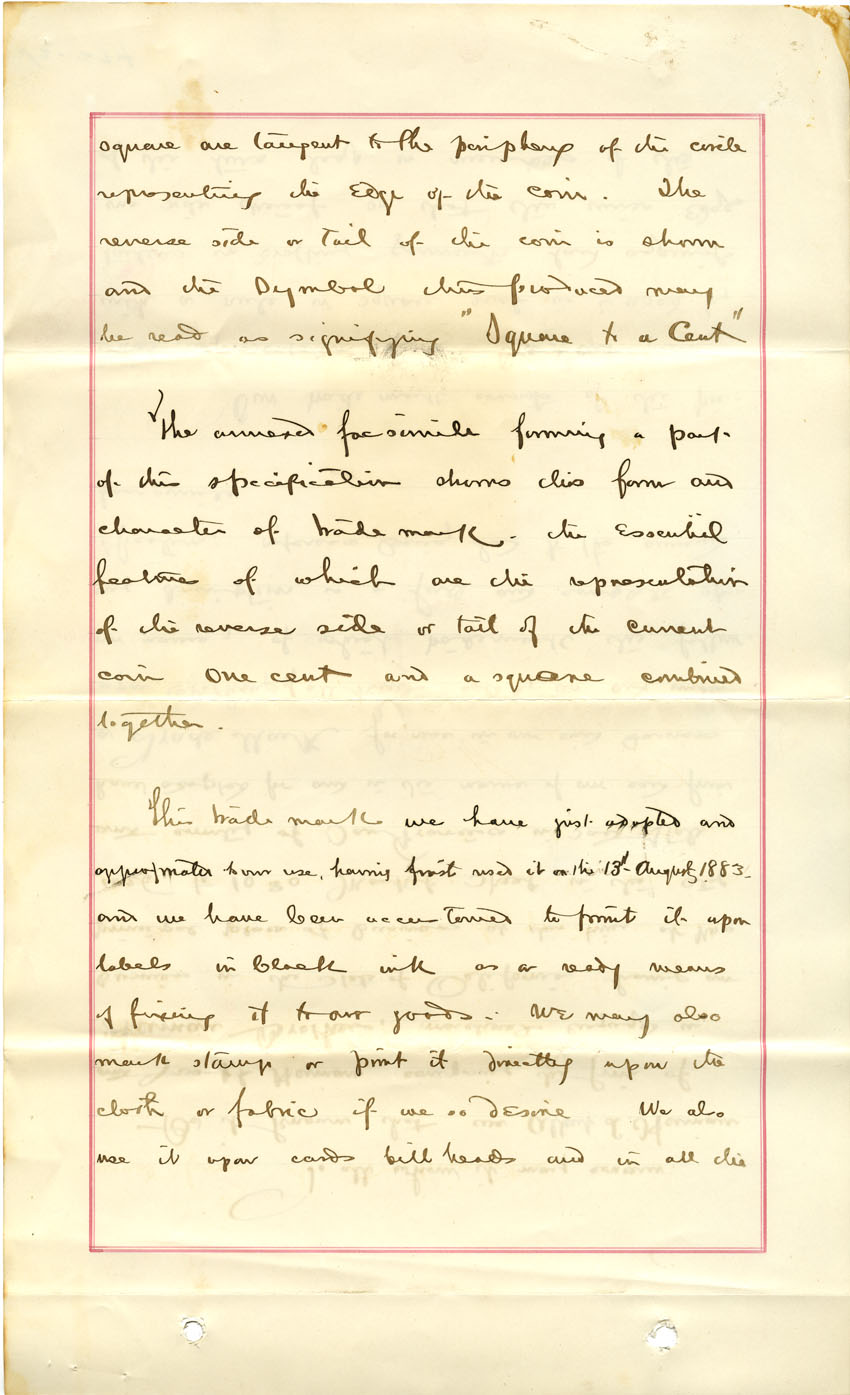 square are tangent to the periphery of the circle
representing the Edge of the coin. The
reverse side or tail of the coin is shown
and the Symbol thus produced may
be read as signifying "Square to a Cent"
The annexed facsimile forming a part
of this specification shows this form and
character of trade mark. the Essential
features of which are the representation
of the reverse side or tail of the current
coin One cent and a square combined
together.
This trade mark we have just adopted and
appropriated to our use, having first used it on the 13th August, 1883.
and we have been accustomed to print it upon
labels in black ink as a ready means
of fixing it to our goods. We may also
mark stamp or print it directly upon the
cloth or fabric if we so desire We also
use it upon cards bill heads and in all the